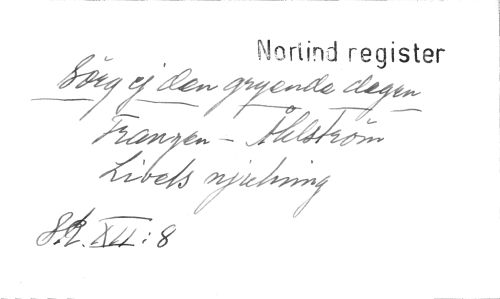 Norlind register
Sörg ej den gryende dagen
Franzen - Åhlström
Livets njutning
S.S. XII:8